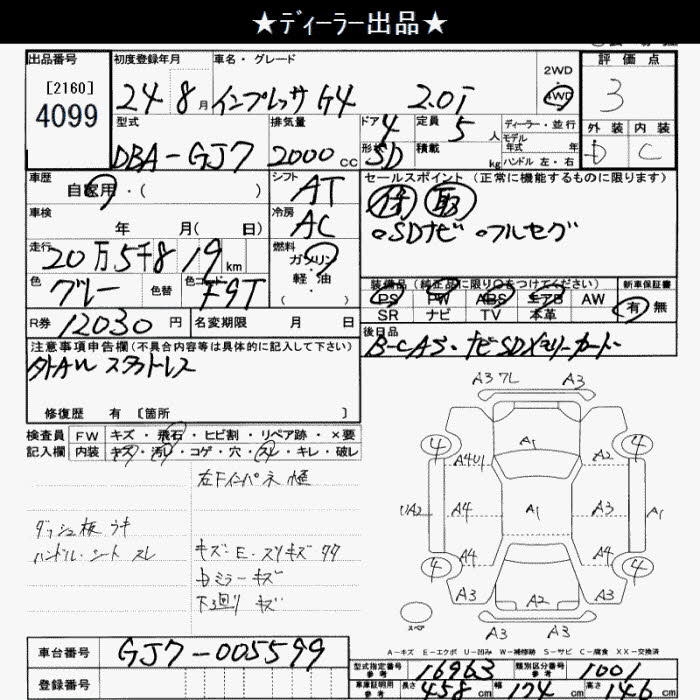 ★ディーラー出品★
出品番号
[2160]
4099
初度登録年月
24 8月
車名・グレード
インプレッサ G4 2.0i
2WD
4WD
評価点
3
外装 内装
D C
型式
DBA-GJ7
排気量
2000cc
ドア 4
形状 SD
定員 5人
積載 kg
ディーラー・並行
モデル
年式 年
ハンドル 左・右
車歴
自家用・( )
シフト
AT
車検
年 月( 日)
冷房
AC
走行
20万5千819km
燃料
ガソリン
・
軽・油
( ・ )
色
グレー
色替
色コード
F9T
R券 12030円
名変期限 月 日
セールスポイント(正常に機能するものに限ります)
保 取
○SDナビ ○フルセグ
装備品(純正品に限り○をつけてください)
PS PW ABS エアB AW
SR ナビ TV 本革
新車保証書
有 無
後日品
B-CAS・ナビSDメモリーカード
注意事項申告欄(不具合内容等は具体的に記入して下さい)
外AW スタットレス
修復歴 有 [箇所 ]
検査員 FW キズ・飛石・ヒビ割・リペア跡・×要
記入欄 内装 キズ・汚れ・コゲ・穴・スレ・キレ・破レ
ダッシュ板 ウキ
ハンドル・シート スレ
キズ・E・スリキズ
ミラーキズ
下廻り キズ
A3 7L A3
4 A1 4
A4U1 A2
UA2 A4 A1 A3 A1
A4 A4
4 4
A3 A2 A3
A3 A3
スペア
A-キズ E-エクボ U-凹み W-補修跡 S-サビ C-腐食 XX-交換済
車台番号 GJ7-005599
登録番号
型式指定番号 参考 16963
類別区分番号 参考 1001
車庫証明用 参考 長さ 458cm 幅 174cm 高さ 146cm